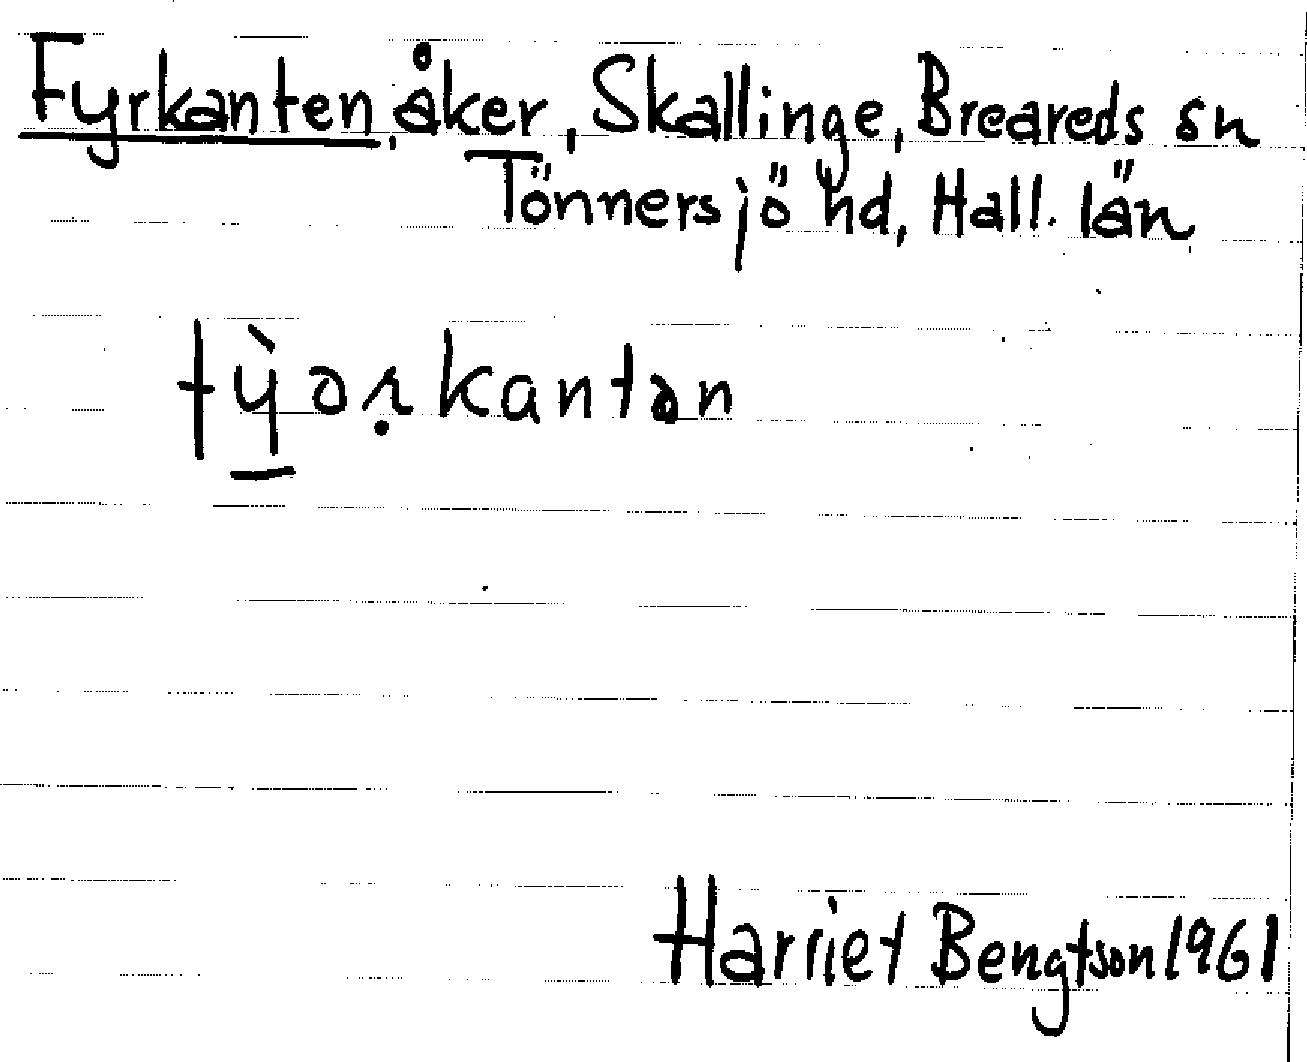 Fyrkanten, åker, Skallinge, Breareds sn
Tönnersjö hd, Hall. län
fỳ̠əṛkantən
Harriet Bengtson 1961